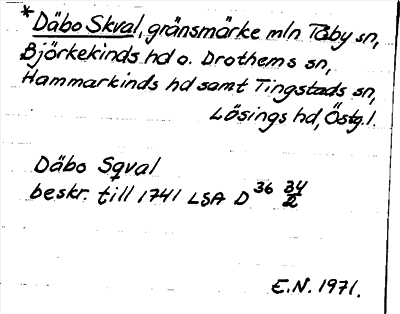 *Däbo Skval, gränsmärke mln Tåby sn,
Björkekinds hd o. Drothems sn,
Hammarkinds hd samt Tingstads sn,
Lösings hd, Östg.l.
Däbo Sqval
beskr. till 1741 LSA D 36 34/2
E.N. 1971.